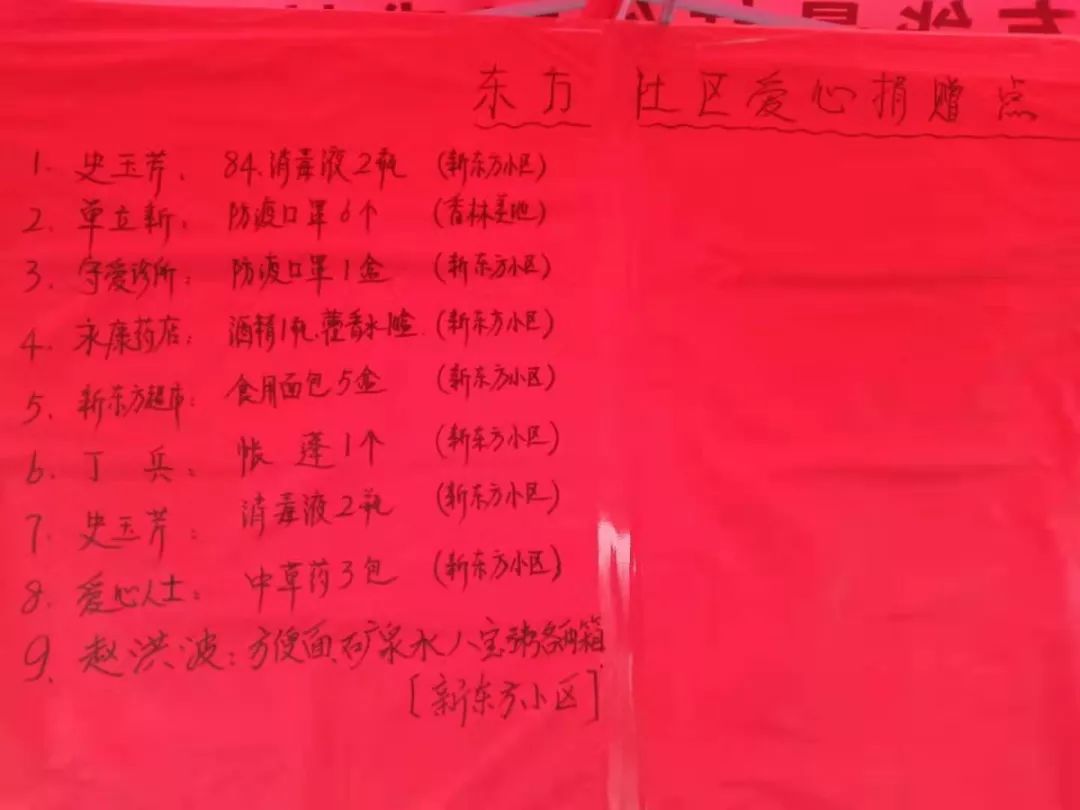 东方社区爱心捐赠点
1. 史玉芳: 84消毒液2瓶 (新东方小区)
2. 单立新: 防渡口罩6个 (香林美地)
3. 守爱诊所: 防渡口罩1盒 (新东方小区)
4. 永康药店: 酒精1瓶、藿香水1盒 (新东方小区)
5. 新东方超市: 食用面包5盒 (新东方小区)
6. 丁兵: 帐蓬1个 (新东方小区)
7. 史玉芳: 消毒液2瓶 (新东方小区)
8. 爱心人士: 中草药3包 (新东方小区)
9. 赵洪波: 方便面、矿泉水、八宝粥各两箱
[新东方小区]